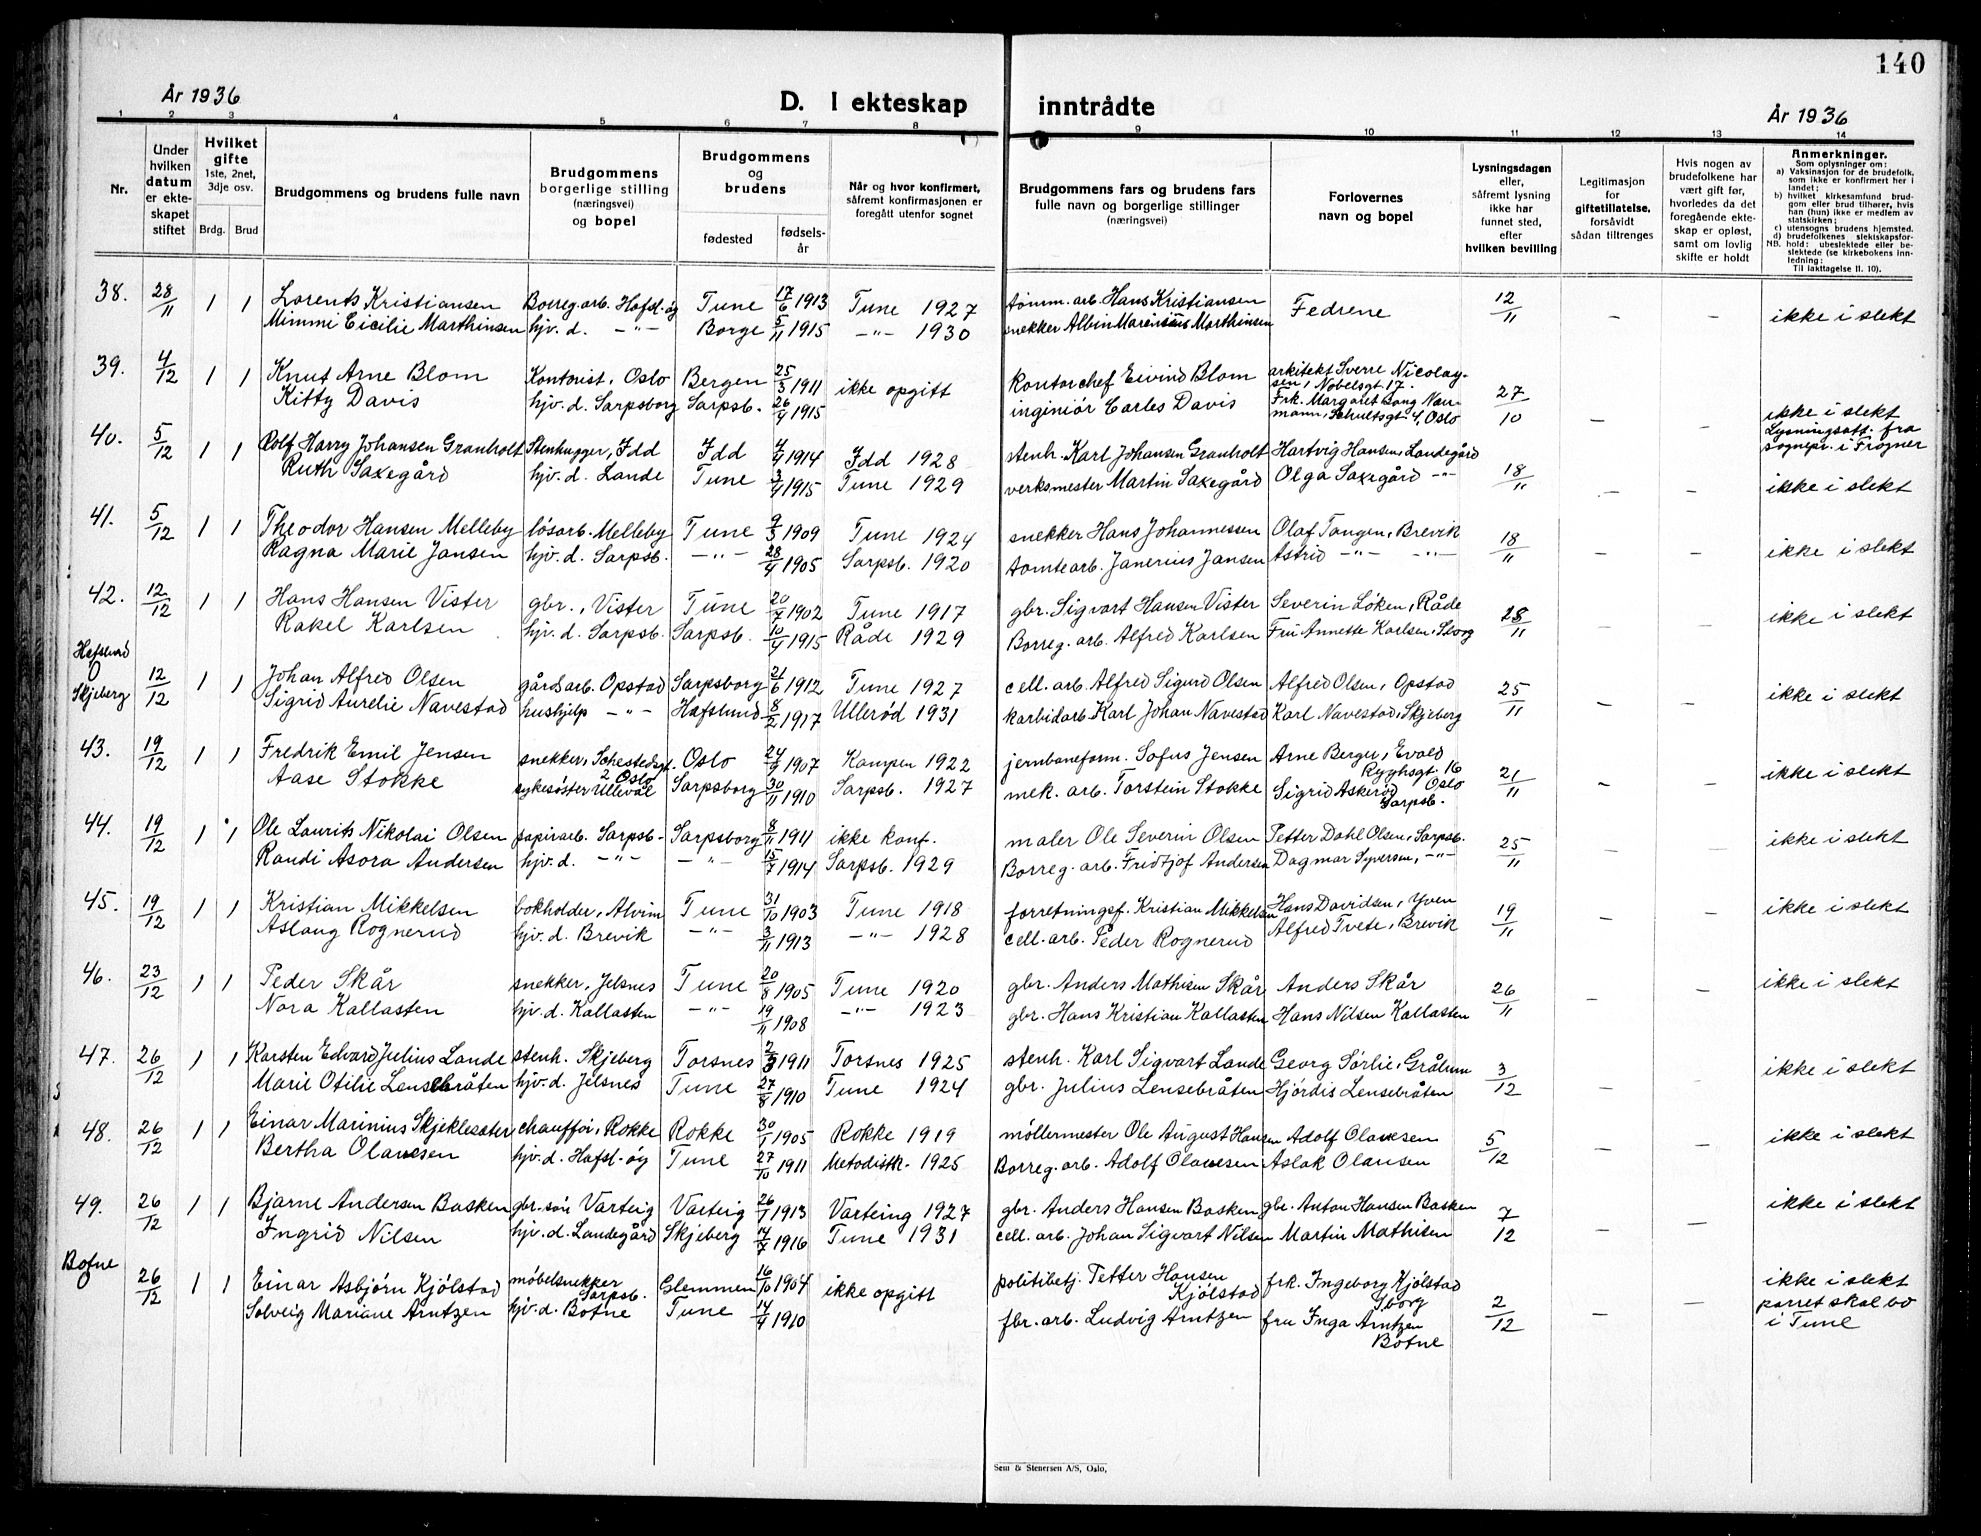 140
År 1936
D. I ekteskap inntrådte
År 1936
1 2 3 4 5 6 7 8 9 10 11 12 13 14
Nr.
Under hvilken datum er ekteskapet stiftet
Hvilket gifte 1ste, 2net, 3dje osv.
Brdg. Brud
Brudgommens og brudens fulle navn
Brudgommens borgerlige stilling (næringsvei) og bopel
Brudgommens og brudens
fødested
fødselsår
Når og hvor konfirmert, såfremt konfirmasjonen er foregått utenfor sognet
Brudgommens fars og brudens fars fulle navn og borgerlige stillinger (næringsvei)
Forlovernes navn og bopel
Lysningsdagen eller, såfremt lysning ikke har funnet sted, efter hvilken bevilling
Legitimasjon for giftetillatelse, forsåvidt sådan tiltrenges
Hvis nogen av brudefolkene har vært gift før, hvorledes da det foregående ekteskap er opløst, samt om lovlig skifte er holdt
Anmerkninger.
Som oplysninger om:
a) Vaksinasjon for de brudefolk, som ikke er konfirmert her i landet;
b) hvilket kirkesamfund brudgom eller brud tilhører, hvis han (hun) ikke er medlem av statskirken;
c) utensogns brudens hjemsted.
d) brudefolkenes slektskapsforhold: ubeslektede eller beslektede (se kirkebokens innledning:
NB. Til iakttagelse II. 10).
38. 28/11 1 1 Lorents Kristiansen Borreg.arb. Hafsl.øy Tune 17/6 1913 Tune 1927 tømm.arb. Hans Kristiansen Fedrene 12/11 – – ikke i slekt
Mimmi Cicilie Marthinsen hjv. d. –"– Borge 5/11 1915 –"– 1930 snekker Albin Marensius Marthinsen
39. 4/12 1 1 Knut Arne Blom Kontorist, Oslo Bergen 25/3 1911 ikke opgitt kontorchef Eivind Blom arkitekt Sverre Nicolaysen, Nobelsgt 17. 27/10 – – ikke i slekt
Kitty Davis hjv. d. Sarpsborg Sarpsb. 26/4 1915 ingeniør Carles Davis Frk. Margaret Bang Nærmann, Schultsgt 4, Oslo Lysningsatt. fra sognepr. i Frogner
40. 5/12 1 1 Rolf Harry Johansen Granholt Stenhugger, Idd Idd 4/4 1914 Idd 1928 stenh. Karl Johansen Granholt Hartvig Hansen, Landegård 18/11 – – ikke i slekt
Ruth Saxegård hjv. d. Lande Tune 3/4 1915 Tune 1929 verksmester Martin Saxegård Olga Saxegård –"–
41. 5/12 1 1 Theodor Hansen Melleby løsarb. Melleby Tune 9/3 1909 Tune 1924 snekker Hans Johannessen Olaf Tangen, Brevik 18/11 – – ikke i slekt
Ragna Marie Jansen hjv. d. Sarpsb. –"– 28/4 1905 Sarpsb. 1920 tomtearb. Janerius Jansen Astrid –"– –"–
42. 12/12 1 1 Hans Hansen Vister gbr., Vister Tune 20/7 1902 Tune 1917 gbr. Sigvart Hansen Vister Severin Løken, Råde 28/11 – – ikke i slekt
Rakel Karlsen hjv. d. Sarpsb. Sarpsb. 10/4 1915 Råde 1929 Borreg. arb. Alfred Karlsen Fru Annette Karlsen, Sborg
Hafslund
O
Skjeberg 12/12 1 1 Johan Alfred Olsen gårdsarb. Opstad Sarpsborg 21/6 1912 Tune 1927 cell. arb. Alfred Sigurd Olsen Alfred Olsen, Opstad 25/11 – – ikke i slekt
Sigrid Aurelie Navestad hushjelp –"– Hafslund 8/2 1917 Ullerød 1931 karbidarb. Karl Johan Navestad Karl Navestad, Skjeberg
43. 19/12 1 1 Fredrik Emil Jensen snekker, Schestedsgt. 2 Oslo Oslo 24/9 1907 Kampen 1922 jernbaneform. Sofus Jensen Arne Berger, Evald Ryghsgt. 16 Oslo 21/11 – – ikke i slekt
Aase Stokke sykesøster Ullevål Sarpsborg 30/11 1910 Sarpsb. 1927 mek. arb. Torstein Stokke Sigrid Askerød Sarpsb.
44. 19/12 1 1 Ole Laurits Nikolai Olsen papirarb. Sarpsb. Sarpsborg 8/11 1911 ikke konf. maler Ole Severin Olsen Petter Dahl Olsen, Sarpsb. 25/11 – – ikke i slekt
Randi Asora Andersen hjv. d. –"– –"– 15/7 1914 Sarpsb. 1929 Borreg. arb. Fridtjof Andersen Dagmar Syversen, –"–
45. 19/12 1 1 Kristian Mikkelsen bokholder, Alvim Tune 31/10 1903 Tune 1918 forretningsf. Kristian Mikkelsen Hans Davidsen, Yven 19/11 – – ikke i slekt
Aslaug Rognerud hjv. d. Brevik –"– 3/11 1913 –"– 1928 cell. arb. Peder Rognerud Alfred Tvete, Brevik
46. 23/12 1 1 Peder Skår snekker, Jelsnes Tune 20/8 1905 Tune 1920 gbr. Anders Mathisen Skår Anders Skår 26/11 – – ikke i slekt
Nora Kallasten hjv. d. Kallasten –"– 19/11 1908 –"– 1923 gbr. Hans Kristian Kallasten Hans Nilsen Kallasten
47. 26/12 1 1 Karsten Edvard Julius Lande stenh. Skjeberg Torsnes 2/3 1911 Torsnes 1925 stenh. Karl Sigvart Lande Georg Sørlie, Grålum 3/12 – – ikke i slekt
Marie Otilie Lensebråten hjv. d. Jelsnes Tune 27/8 1910 Tune 1924 gbr. Julius Lensebråten Hjørdis Lensebråten
48. 26/12 1 1 Einar Marinius Skjeklesæter chauffør, Rokke Rokke 30/1 1905 Rokke 1919 møllermester Ole August Hansen Adolf Olausen 5/12 – – ikke i slekt
Bertha Olausen hjv. d. Hafsl.øy Tune 27/10 1911 Metodistk. 1925 Borreg. arb. Adolf Olausen Aslak Olausen
49. 26/12 1 1 Bjarne Andersen Basken gbr. søn Varteig Varteig 26/1 1913 Varteing 1927 gbr. Anders Hansen Basken gbr. Anton Hansen Basken 7/12 – – ikke i slekt
Ingrid Nilsen hjv. d. Landegård Skjeberg 14/7 1916 Tune 1931 cell. arb. Johan Sigvart Nilsen Martin Mathisen
Botne
O 26/12 1 1 Einar Asbjørn Kjølstad møbelsnekker Sarpsb. Glemmen 16/10 1904 ikke opgitt politibetj. Petter Hansen Kjølstad frk. Ingeborg Kjølstad Sborg 2/12 – – ikke i slekt
Solveig Mariane Arntzen hjv. d. Botne Tune 14/4 1910 fbr. arb. Ludvig Arntzen fru Inga Arntzen Botne parret skal bo i Tune
Sem & Stenersen A/S, Oslo,